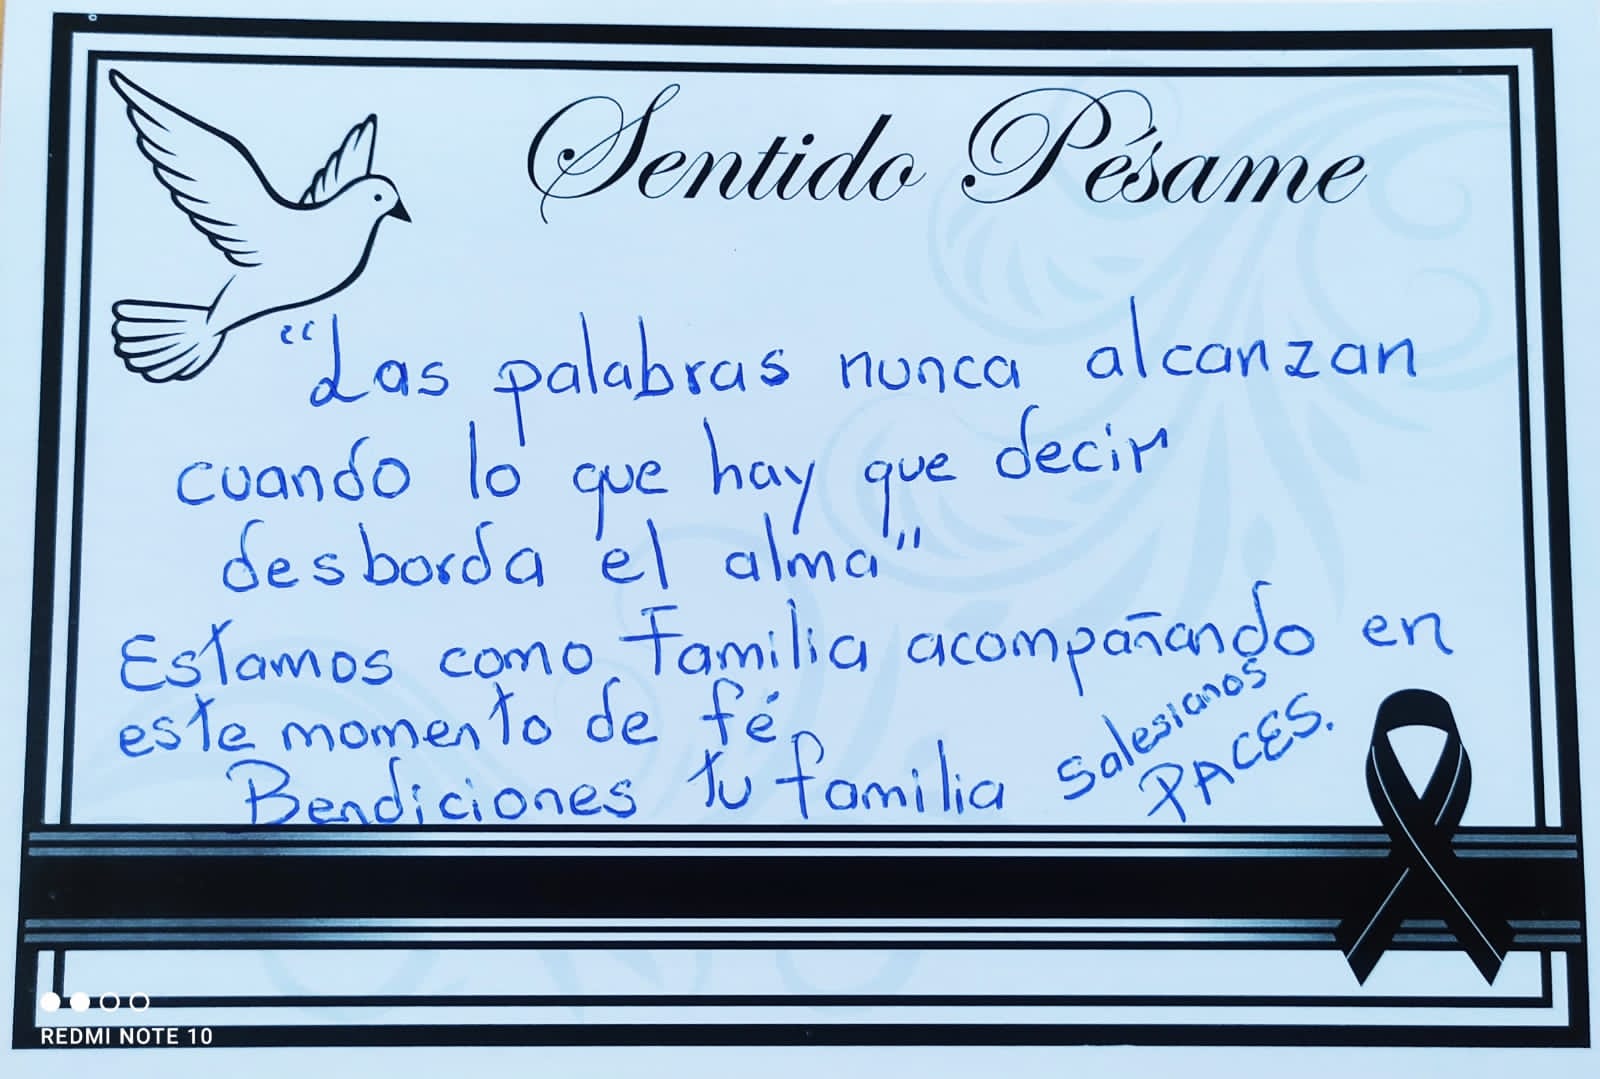 Sentido Pésame
“Las palabras nunca alcanzan
cuando lo que hay que decir
desborda el alma”
Estamos como familia acompañando en
este momento de fé,
Bendiciones tu familia salesianos
PACES.
REDMI NOTE 10